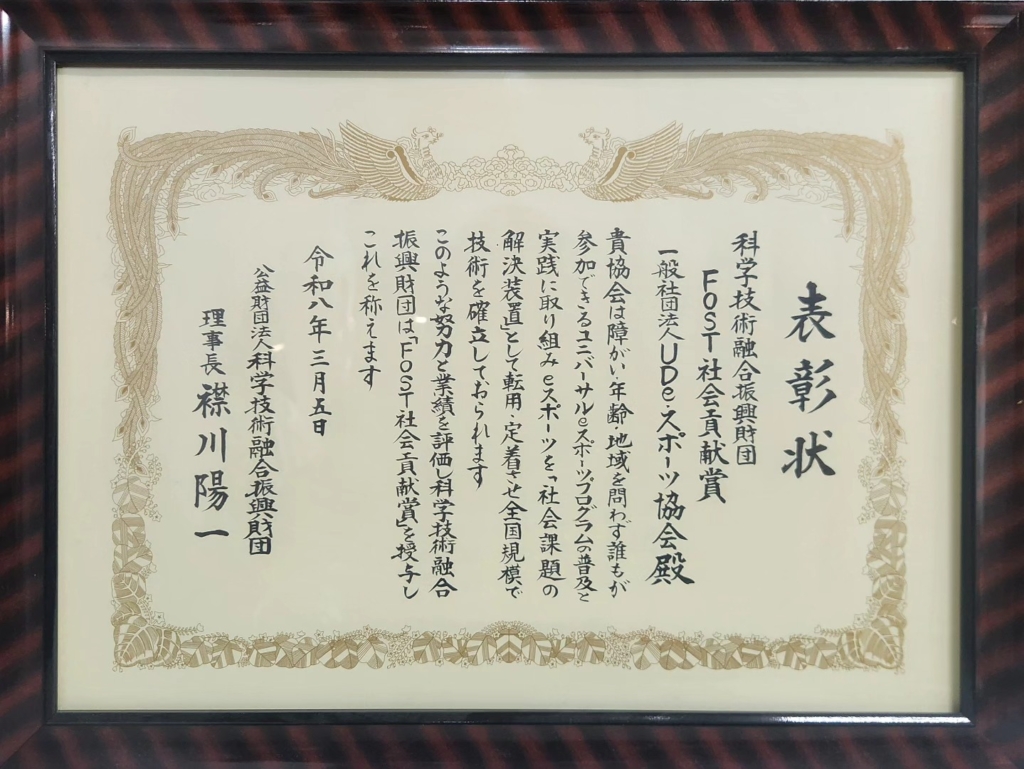 表彰状
科学技術融合振興財団
FOST社会貢献賞
一般社団法人UDe・スポーツ協会殿
貴協会は障がい・年齢・地域を問わず誰もが
参加できるユニバーサルeスポーツプログラムの普及と
実践に取り組みeスポーツを「社会課題の
解決装置」として転用・定着させ全国規模で
技術を確立しておられます
このような努力と業績を評価し科学技術融合
振興財団は「FOST社会貢献賞」を授与し
これを称えます
令和八年三月五日
公益財団法人科学技術融合振興財団
理事長 襟川陽一